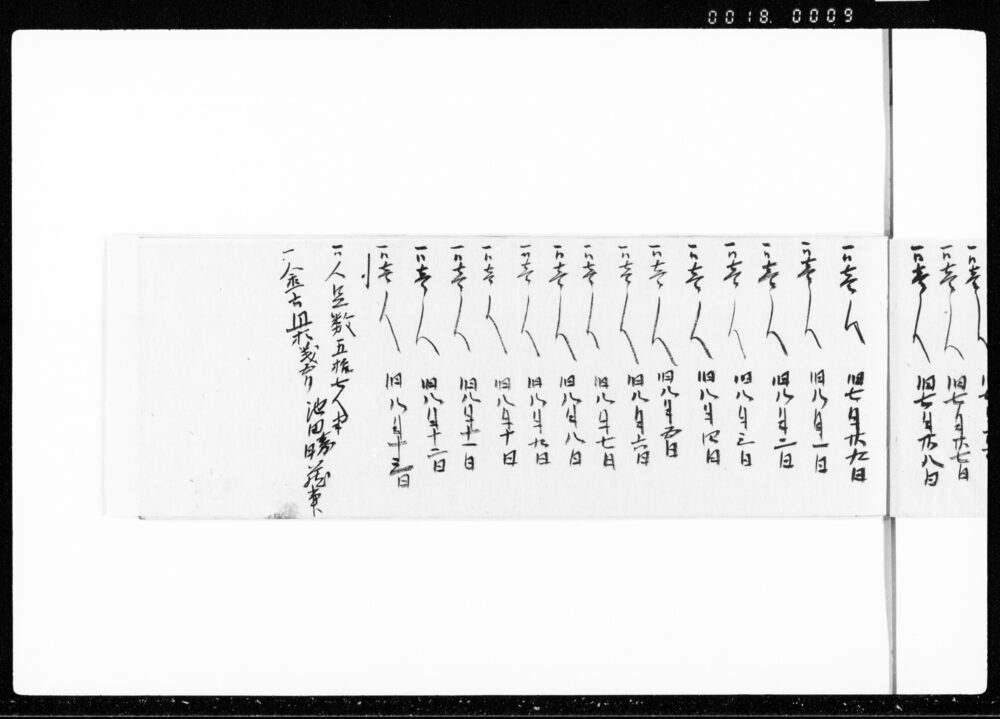 0018.0009
一〃壱人 旧七月廿七日
一〃壱人 旧七月廿八日
一〃壱人 旧七月廿九日
一〃壱人 旧八月一日
一〃壱人 旧八月二日
一〃壱人 旧八月三日
一〃壱人 旧八月四日
一〃壱人 旧八月五日
一〃壱人 旧八月六日
一〃壱人 旧八月七日
一〃壱人 旧八月八日
一〃壱人 旧八月九日
一〃壱人 旧八月十日
一〃壱人 旧八月十一日
一〃壱人 旧八月十二日
一〃壱人 旧八月十三日
〆
一〃人足数五拾七人半
一金 池田勝蔵